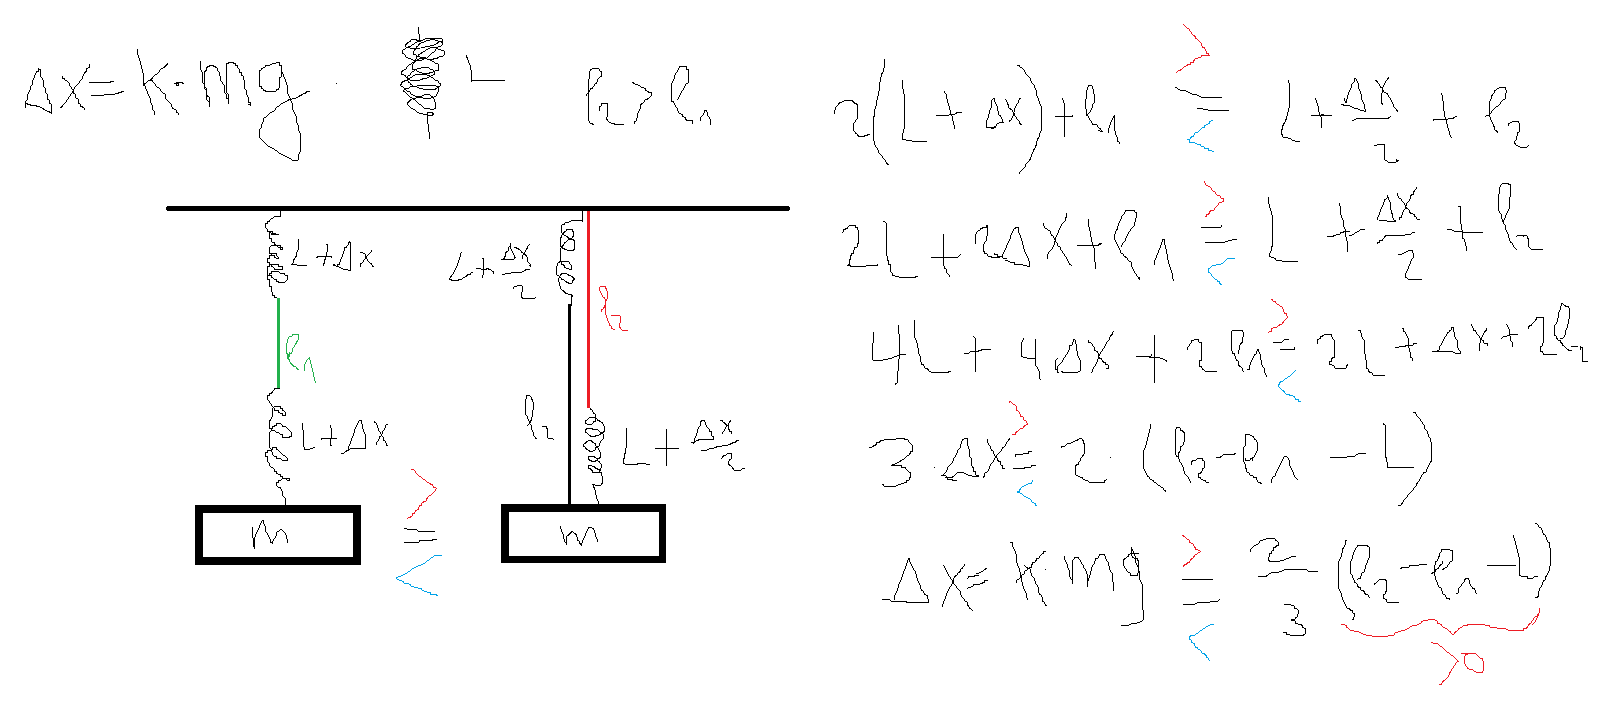 Δx = k·mg
L
l₂ > l₁
L+Δx
l₁
L+Δx
m
>
=
<
L+Δx/2
l₂
l₂
L+Δx/2
m
2(L+Δx)+l₁ > = < L+Δx/2+l₂
2L+2Δx+l₁ > = < L+Δx/2+l₂
4L+4Δx+2l₁ > = < 2L+Δx+2l₂
3·Δx > = < 2·(l₂-l₁-L)
Δx = k·mg > = < 2/3 (l₂-l₁-L)
>0